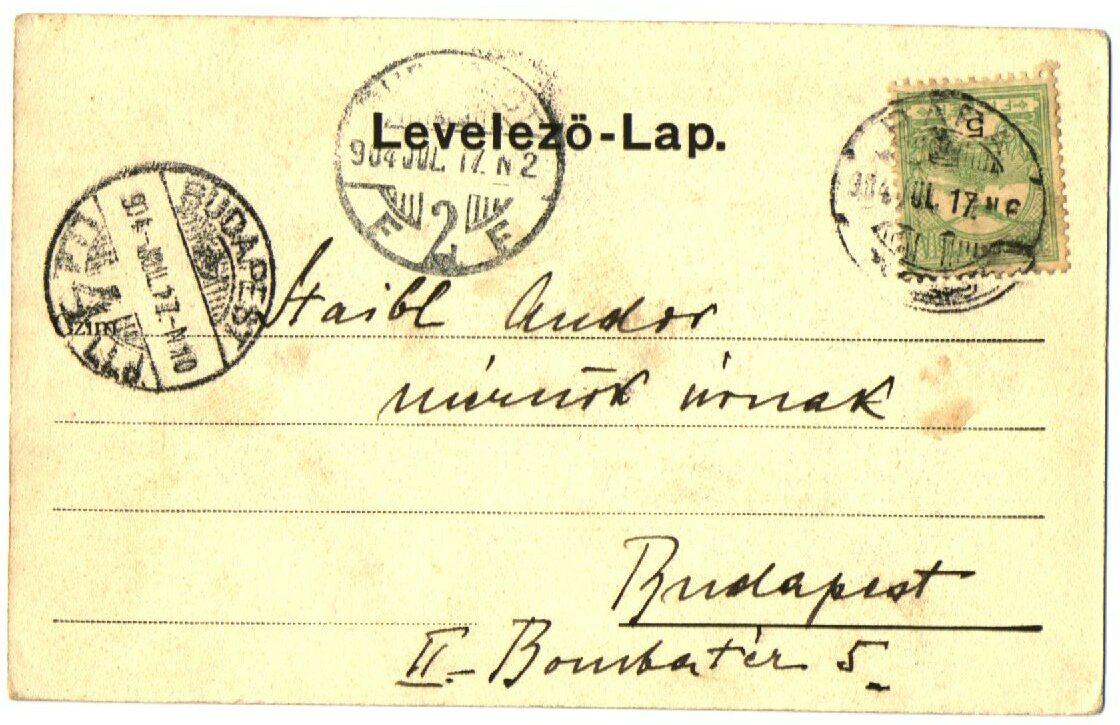 Levelező-Lap.
904 JUL. 17. N 2
F 2 F
5
904 JUL. 17. N 6
BUDAPEST
904-JUL. 17.-N10
Czim
Staibl Andor
mérnök úrnak
Budapest
II. Bombatér 5